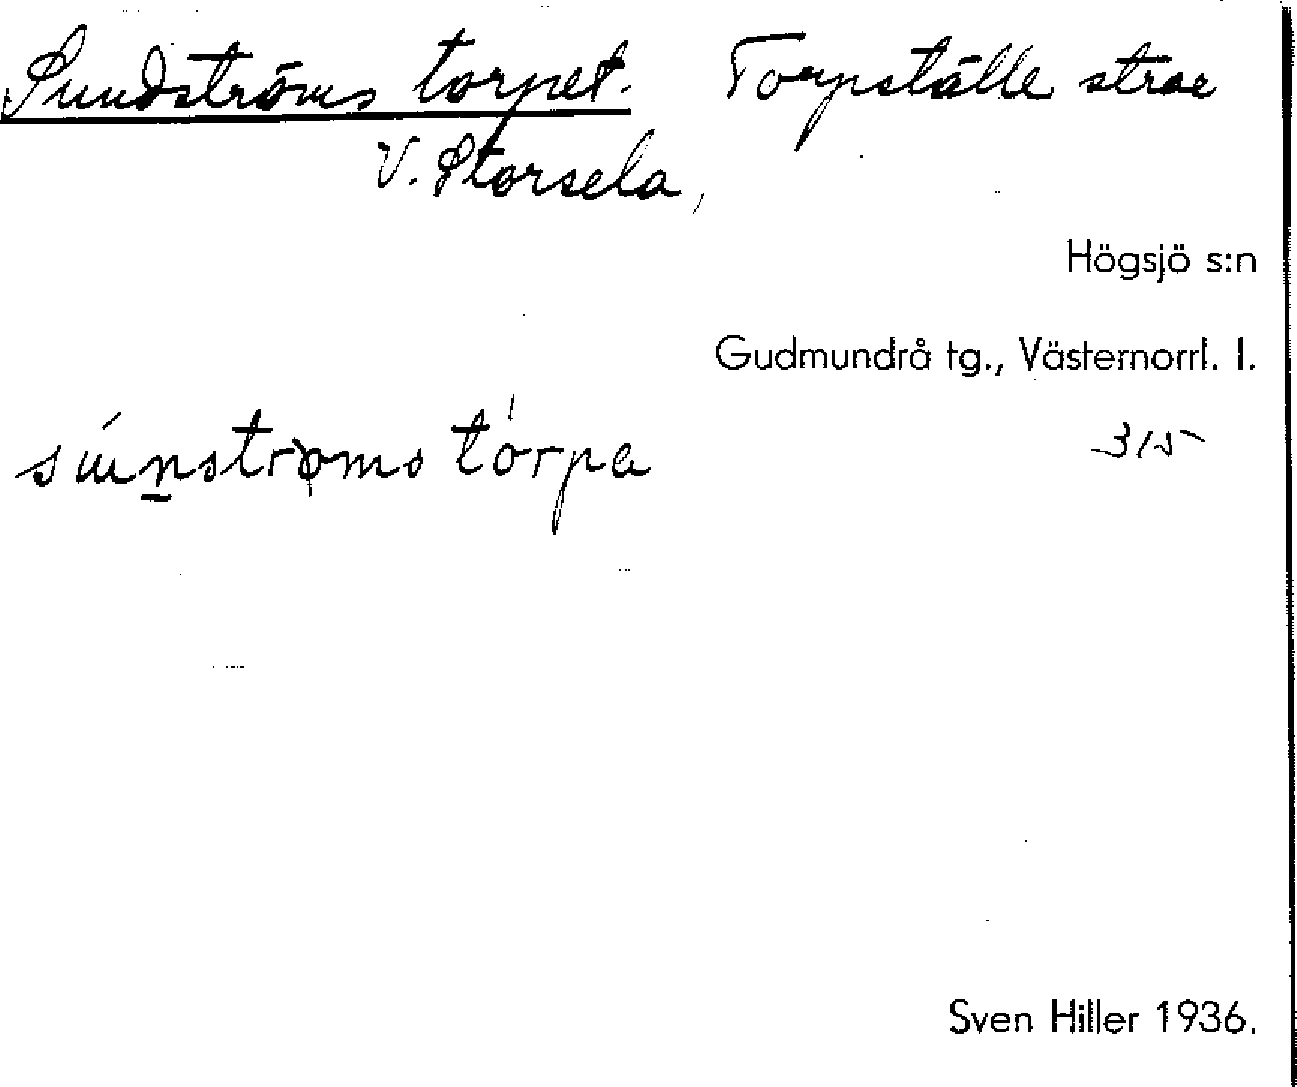 Sundströms torpet. Torpställe
V. Storsela,
Högsjö s:n
Gudmundrå tg., Västernorrl. l.
súnstrøms tórpa
315
Sven Hiller 1936.